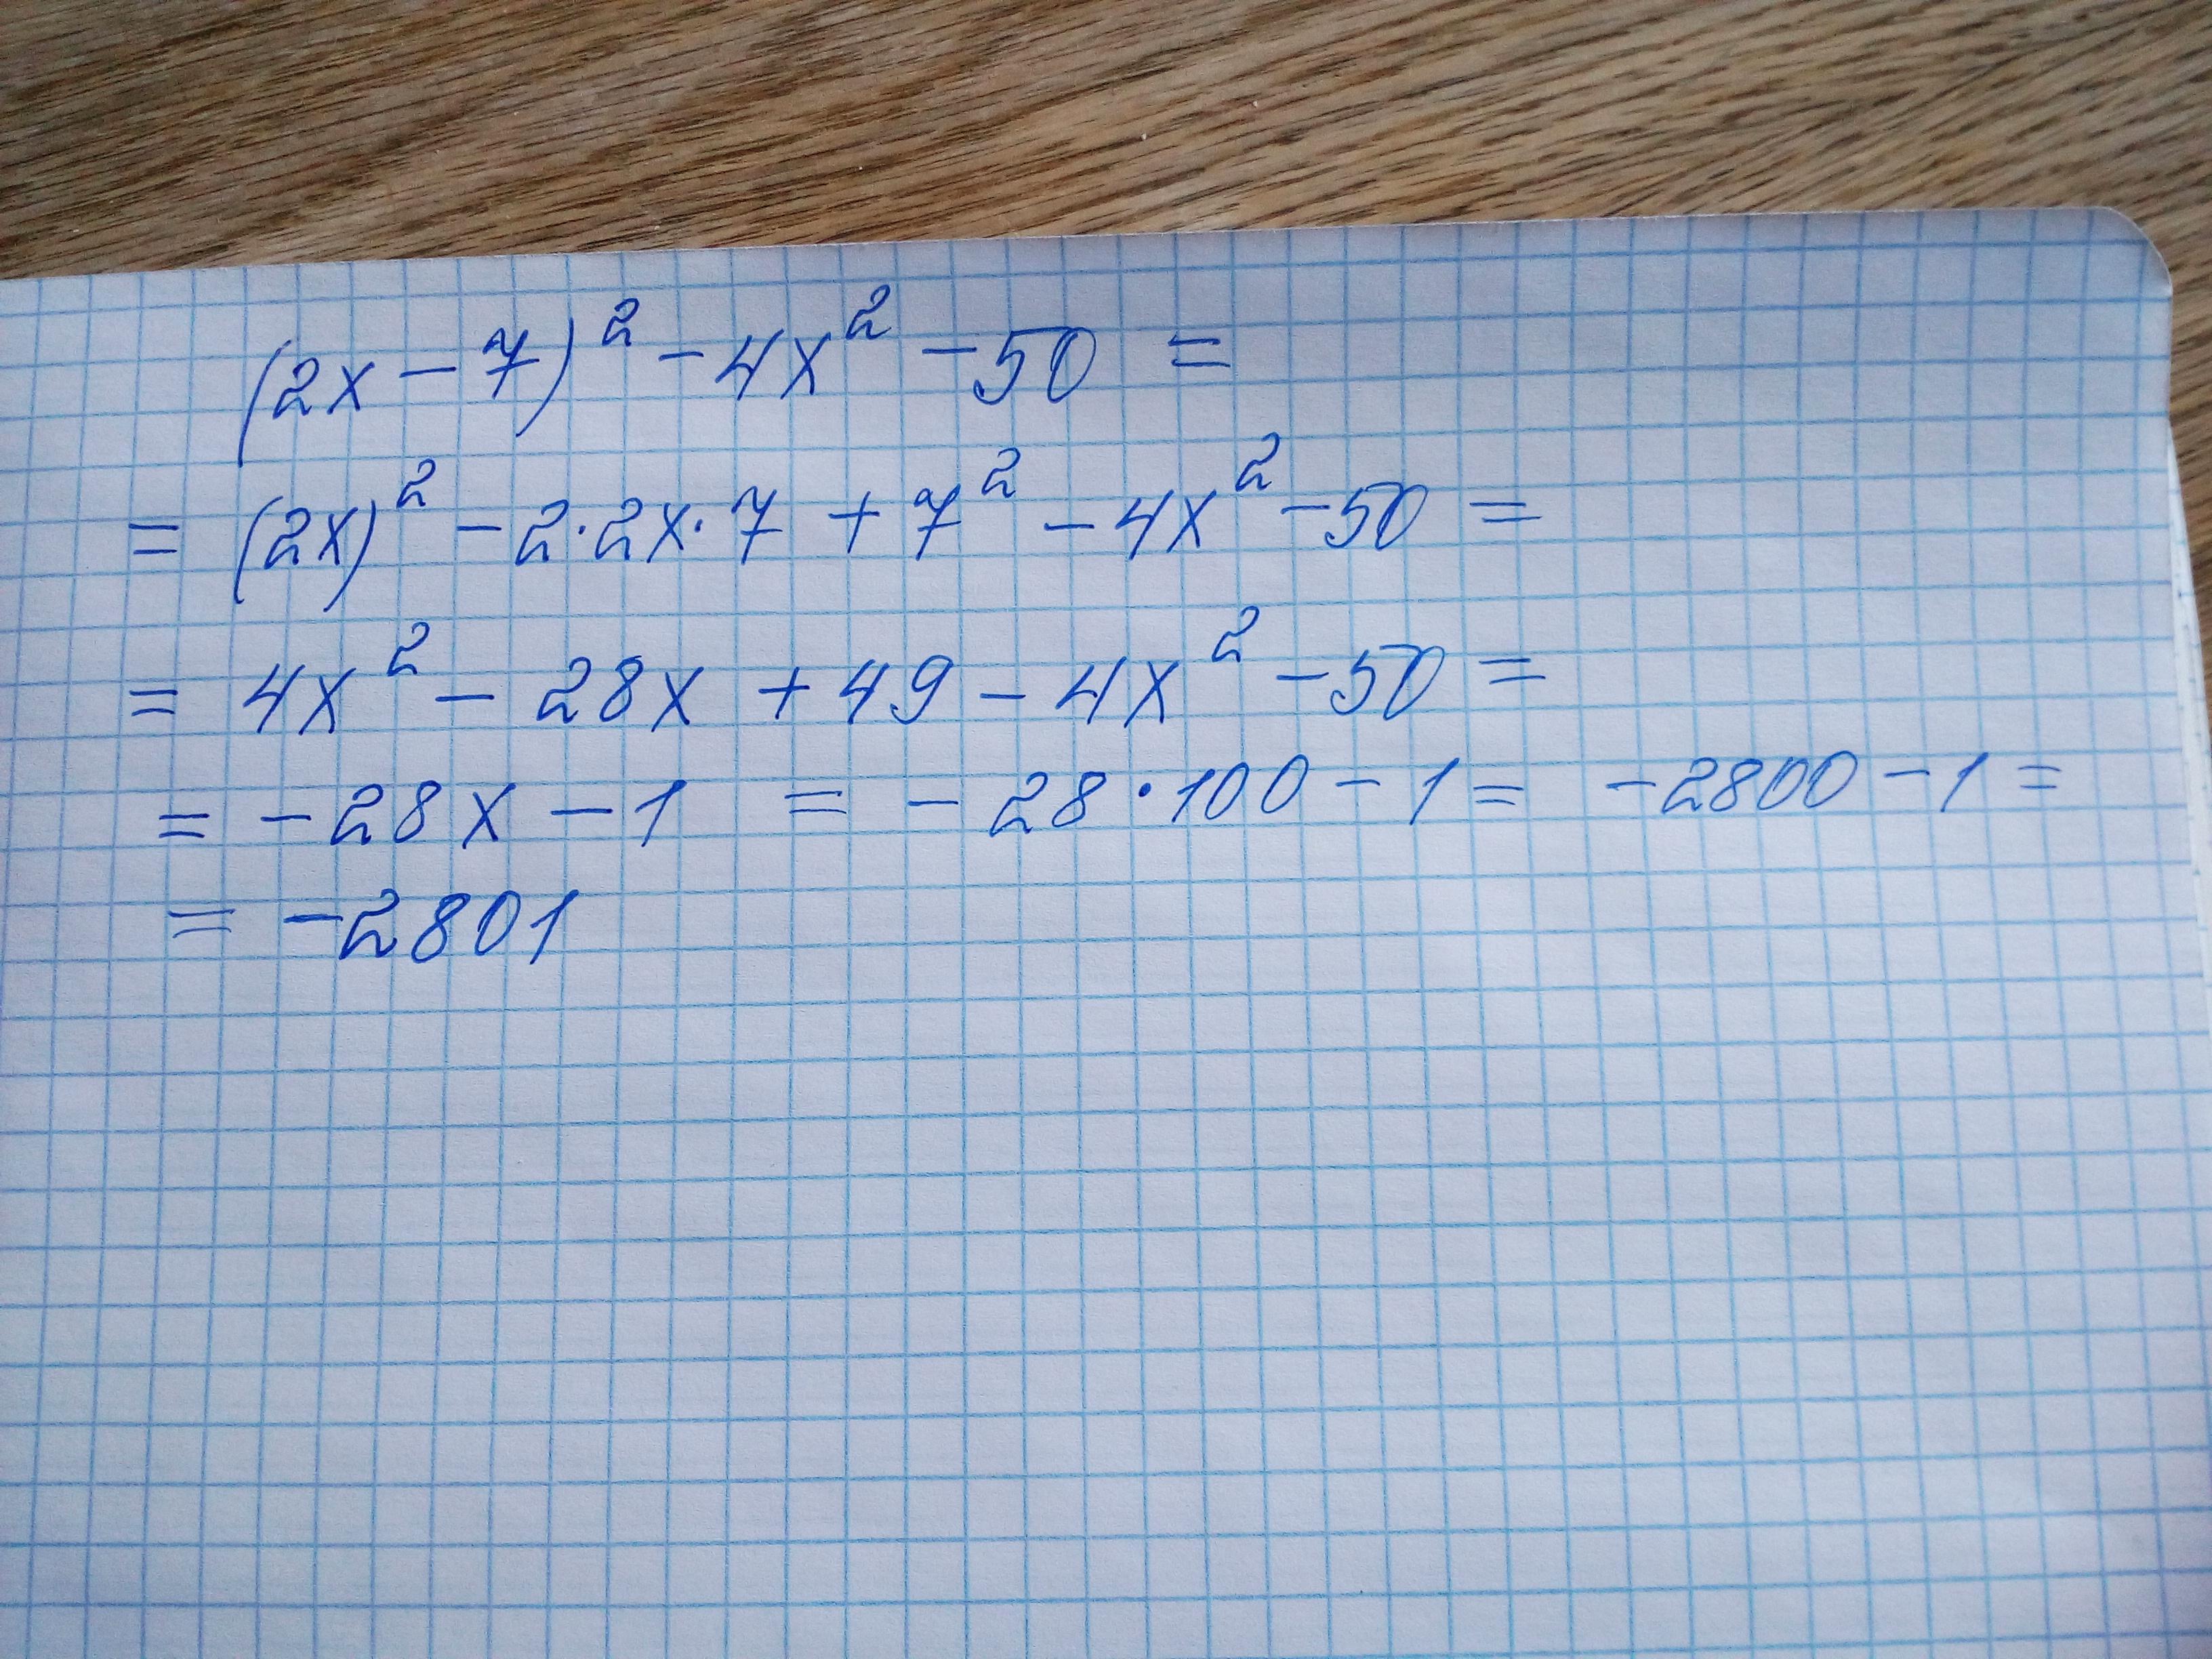 (2x - 7)² - 4x² - 50 =
= (2x)² - 2·2x·7 + 7² - 4x² - 50 =
= 4x² - 28x + 49 - 4x² - 50 =
= -28x - 1 = -28·100 - 1 = -2800 - 1 =
= -2801